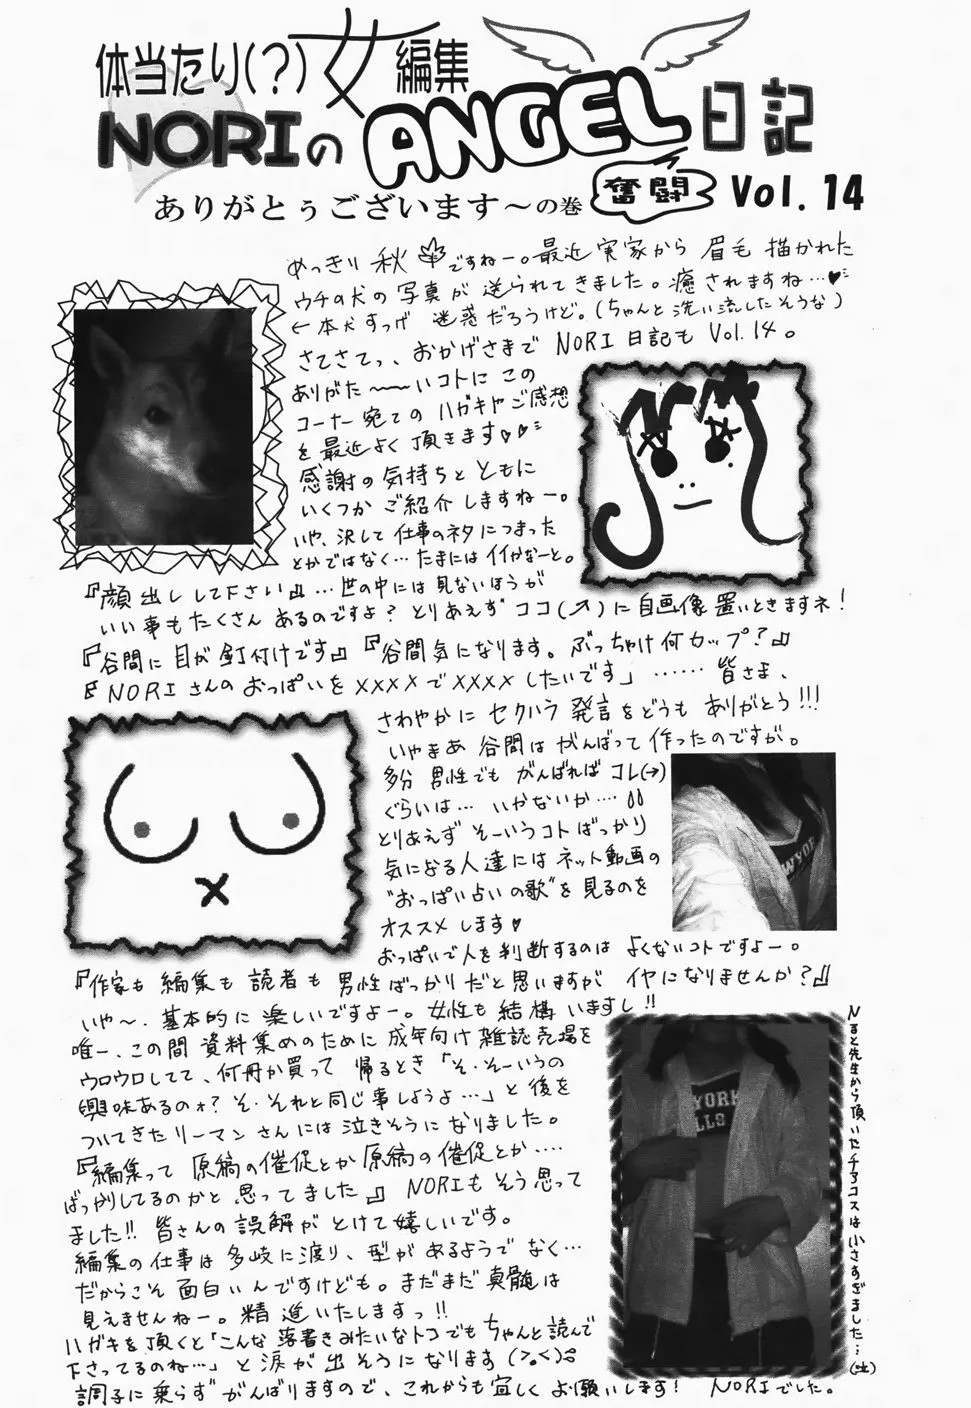 体当たり(?)女編集
NORIのANGEL日記
ありがとぅございます〜の巻 奮闘 Vol. 14
めっきり 秋 ですねー。最近 実家から 眉毛 描かれた
ウチの犬の 写真が 送られてきました。癒されますね…♥
←本犬すっげ 迷惑だろうけど。(ちゃんと洗い流したそうな)
さてさてっ、おかげさまで NORI 日記も Vol.14。
ありがた〜〜いコトに この
コーナー宛ての ハガキやご感想
を最近よく 頂きます♡♡
感謝の気持ちとともに
いくつか ご紹介しますねー。
いや、決して仕事のネタにつまった
とかではなく…たまにはイイかなーと。
『顔出しして下さい』…世の中には見ないほうが
いい事もたくさんあるのですよ?とりあえず ココ(↗)に自画像置いときますネ!
『谷間に 目が釘付けです』『谷間気になります。ぶっちゃけ何カップ?』
『NORIさんのおっぱいをXXXXでXXXXしたいです」……皆さま、
さわやかに セクハラ 発言をどうも ありがとう!!!
いやまあ 谷間は がんばって作ったのですが。
多分 男性でも がんばれば コレ(→)
ぐらいは… いかないか…
とりあえず そーいうコトばっかり
気になる人達には ネット動画の
“おっぱい占いの歌”を見るのを
オススメします♥
おっぱいで人を判断するのは よくないコトですよー。
YORK
『作家も 編集も 読者も 男性ばっかりだと思いますが イヤになりませんか?』
いや〜、基本的に楽しいですよー。女性も結構いますし!!
唯一、この間 資料集めのために成年向け雑誌売場を
ウロウロしてて、何冊か買って 帰るとき「そ・そーいうの
興味あるのォ?そ・それと同じ事しようよ…」と後を
ついてきたリーマンさんには泣きそうになりました。
『編集って 原稿の催促とか原稿の催促とか…
ばっかりしてるのかと 思ってました』 NORIもそう思って
ました!! 皆さんの誤解がとけて嬉しいです。
編集の仕事は多岐に渡り、型があるようでなく…
だからこそ 面白いんですけども。まだまだ真髄は
見えませんねー。精進いたしますっ!!
ハガキを頂くと「こんな落書きみたいなトコでもちゃんと読んで
下さってるのね…」と涙が出そうになります
調子に乗らずがんばりますので、これからも宜しくお願いします! NORIでした。
YORK
LLS
先生から頂いたチアコスは小さすぎました…